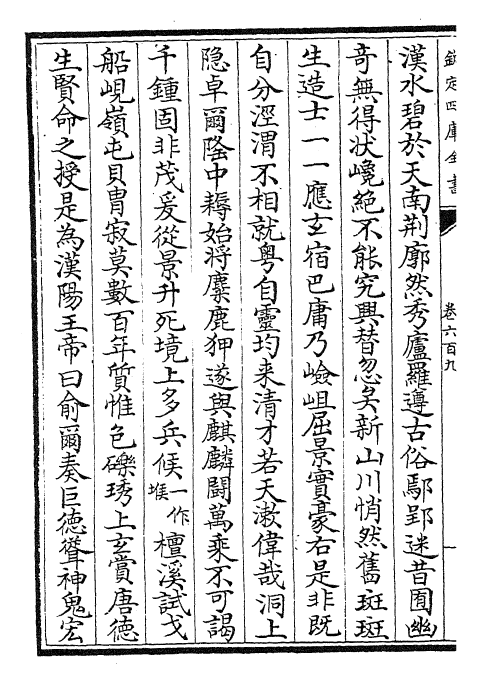 欽定四庫全書
卷六百九
漢水碧於天南荆廓然秀廬羅遵古俗鄢郢迷昔囿幽
奇無得状巉絶不能究興替忽矣新山川悄然舊斑斑
生造士一一應𤣥宿巴庸乃嶮岨屈景實豪右是非既
自分涇渭不相就粤自靈均来清才若天漱偉哉洞上
隐卓爾隆中耨始将麋鹿狎遂與麒麟鬭萬乘不可謁
千鍾固非茂爰從景升死境上多兵候一作堠檀溪試戈
船峴嶺屯貝胄寂莫數百年質惟包礫琇上𤣥賞唐德
生賢命之授是為漢陽王帝曰俞爾奏巨德聳神鬼宏